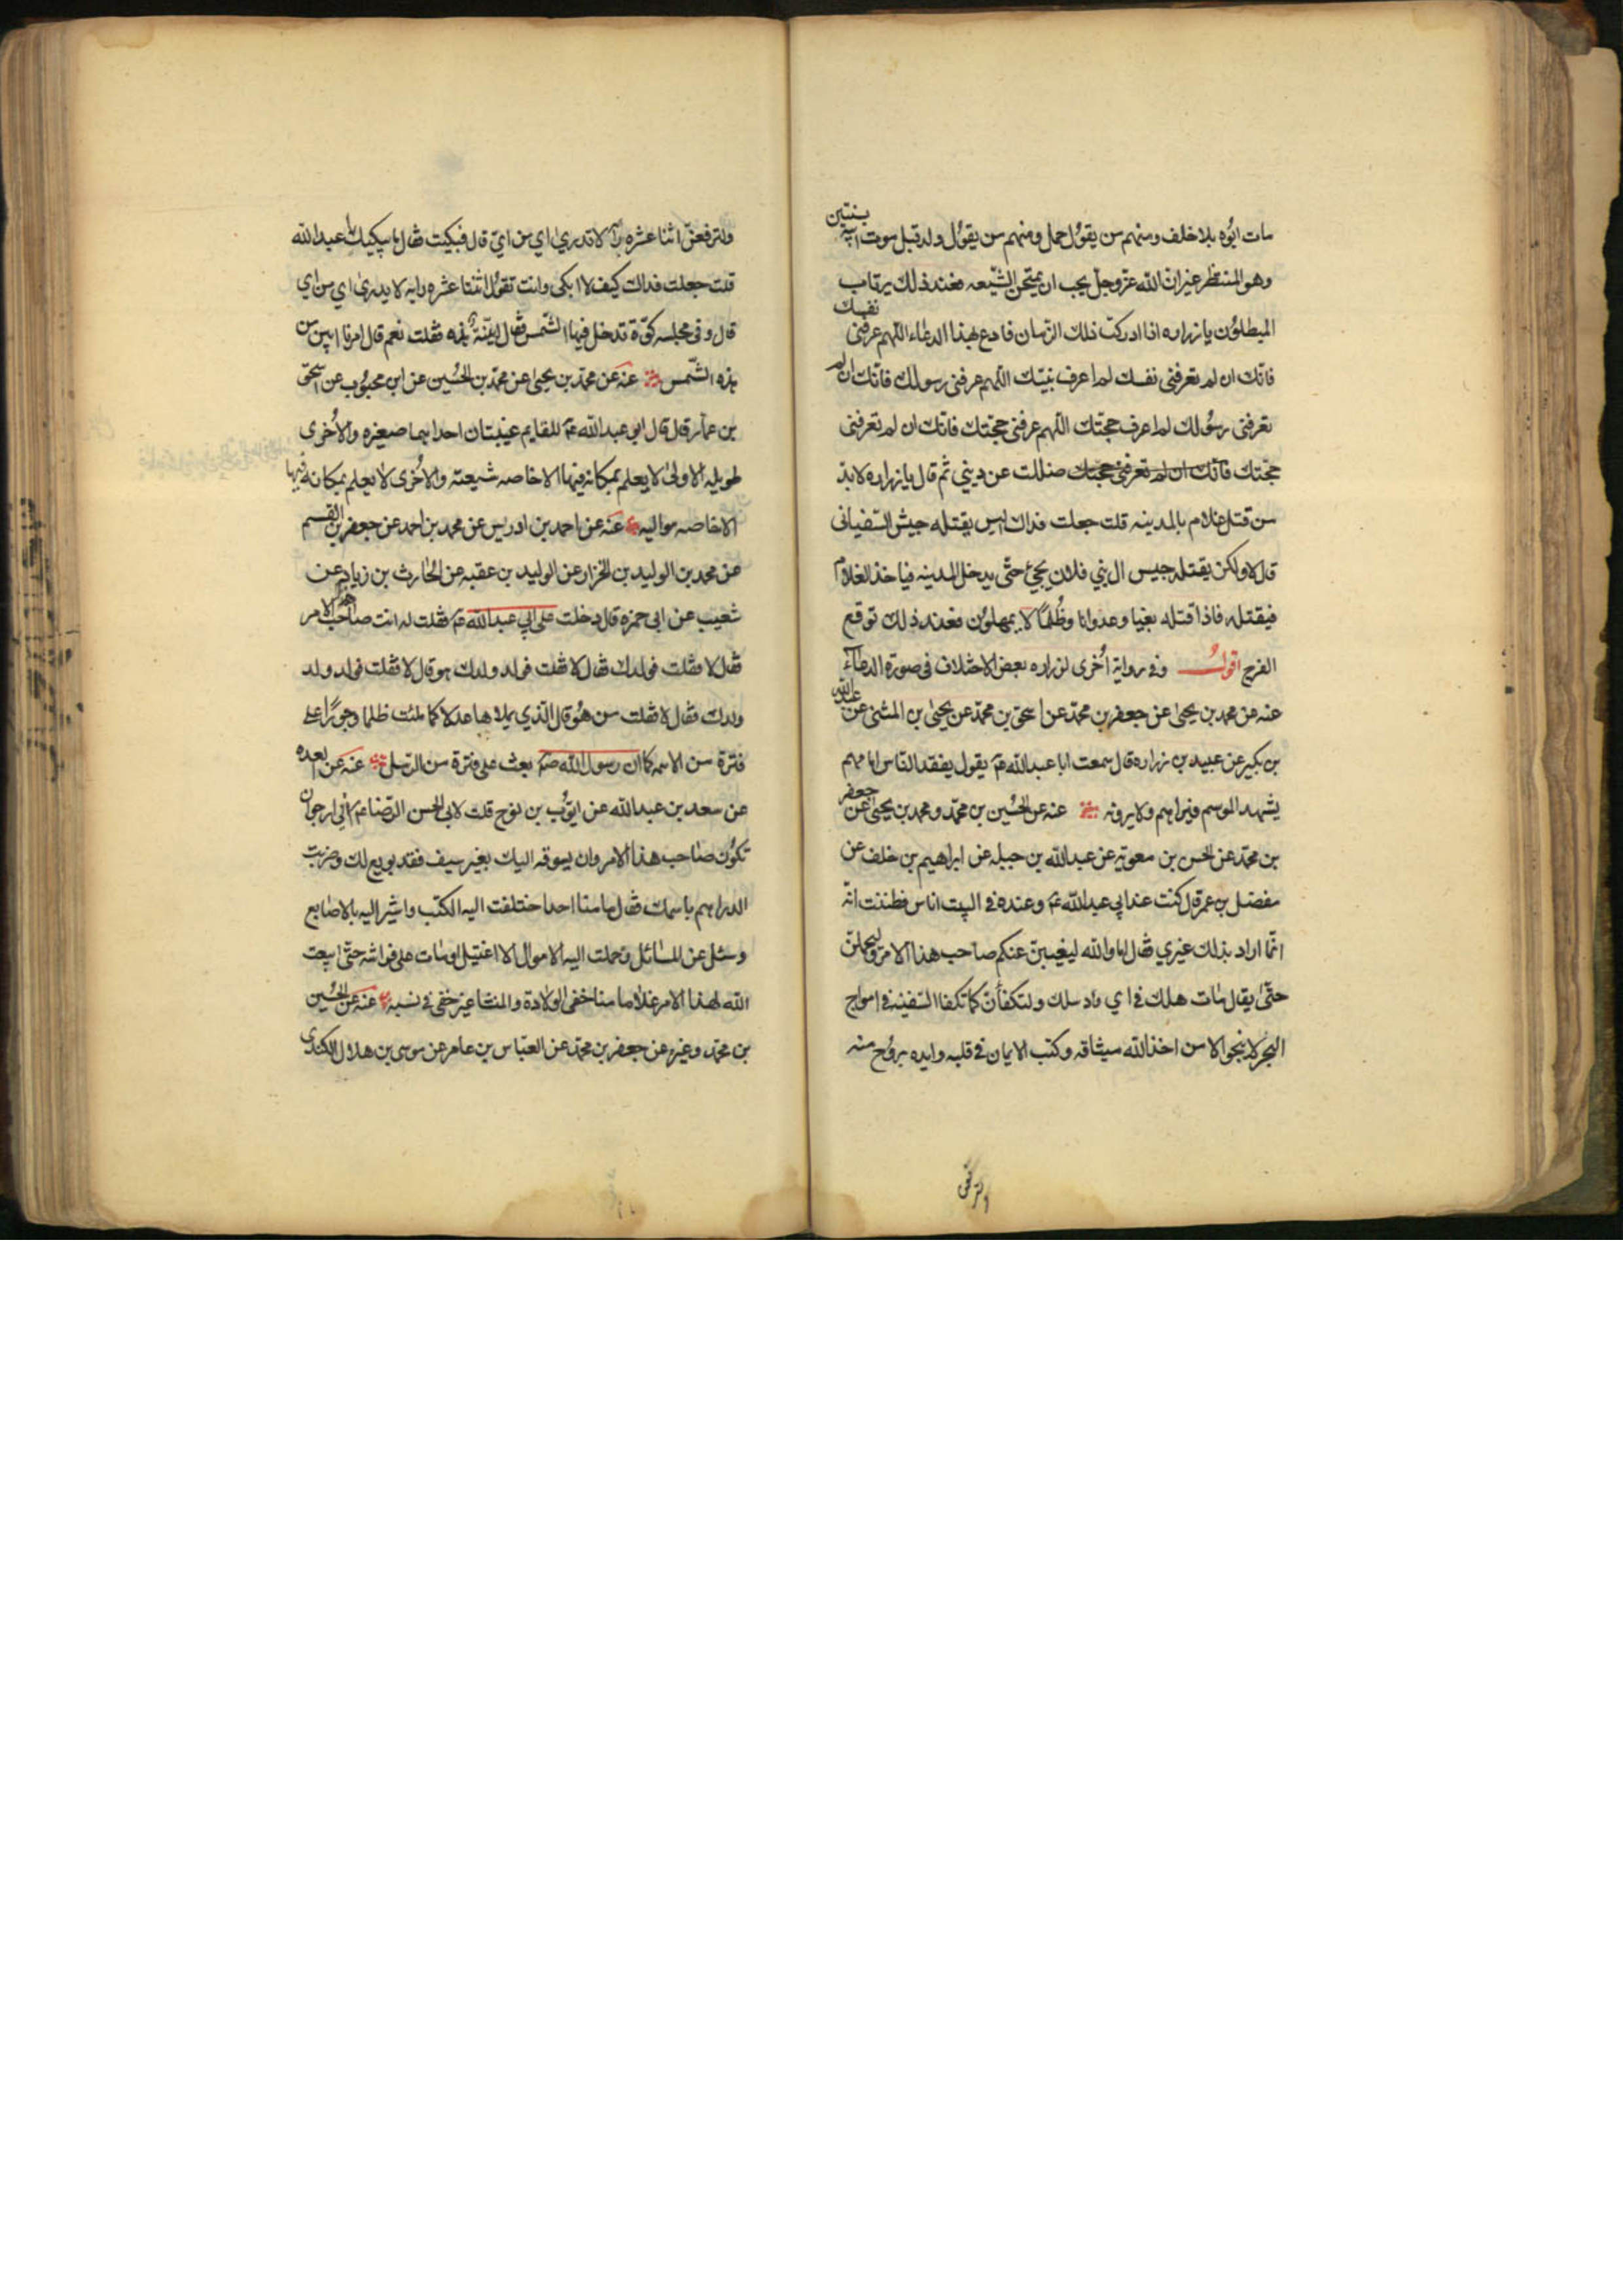 مات ابوه بلا خلف ومنهم من يقول حمل ومنهم من يقول ولد قبل موت ابيه بسنتين
وهو المنتظر غير ان الله عز وجل يحب ان يمتحن الشيعه فعند ذلك يرتاب
المبطلون يا زراره اذا ادركت ذلك الزمان فادع بهذا الدعاء اللهم عرفنى نفسك
فانك ان لم تعرفنى نفسك لم اعرف نبيك اللهم عرفنى رسولك فانك ان لم
تعرفنى رسولك لم اعرف حجتك اللهم عرفنى حجتك فانك ان لم تعرفنى
حجتك فانك ان لم تعرفنى حجتك ضللت عن ديني ثم قال يا زراره لا بد
من قتل غلام بالمدينه قلت جعلت فداك اليس يقتله جيش السفيانى
قال لا ولكن يقتله جيس ال بني فلان يجيئ حتى يدخل المدينه فياخذ الغلام
فيقتله فاذا قتله بغيا وعدوانا وظلما لا يمهلون فعند ذلك توقع
الفرج اقول وفى رواية اخرى لزراره بعض الاختلاف فى صورة الدعاء
عنه عن محمد بن يحيى عن جعفر بن محمد عن اسحق بن محمد عن يحيى بن المثنى عن عبد الله
بن بكير عن عبيد بن زراره قال سمعت ابا عبد الله ع يقول يفقد الناس امامهم
يشهد الموسم فيراهم ولا يرونه عنه عن الحسين بن محمد ومحمد بن يحيى عن جعفر
بن محمد عن الحسن بن معوية عن عبد الله بن جبله عن ابراهيم بن خلف عن
مفضل بن عمر قال كنت عند ابي عبد الله ع وعنده فى البيت اناس فظننت انه
انما اراد بذلك غيري فقال اما والله ليغيبن عنكم صاحب هذا الامر وليخملن
حتى يقال مات هلك فى اي واد سلك ولتكفأن كما تكفا السفينه فى امواج
البحر لا ينجو الا من اخذ الله ميثاقه وكتب الايمان فى قلبه وايده بروح منه
ولترفعن
ولترفعن اثنا عشره راية لا تدرى اي من اي قال فبكيت فقال ما يبكيك يا عبد الله
قلت جعلت فداك كيف لا ابكى وانت تقول اثنتا عشره رايه لا يدرى اي من اي
قال وفى مجلسه كوة تدخل فيها الشمس فقال ابينة هذه فقلت نعم قال امرنا ابين من
هذه الشمس عنه عن محمد بن يحيى عن محمد بن الحسين عن ابن محبوب عن اسحق
بن عمار قال قال ابي عبد الله ع للقايم غيبتان احدايهما صغيره والاخرى
طويله الاولى لا يعلم بمكانه فيها الا خاصه شيعته والاخرى لا يعلم بمكانه فيها
الا خاصه مواليه عنه عن احمد بن ادريس عن محمد بن احمد عن جعفر بن القسم
عن محمد بن الوليد بن الخزاز عن الوليد بن عقبه عن الحارث بن زياد عن
شعيب عن ابى حمزه قال دخلت على ابي عبد الله ع فقلت له انت صاحب هذا الامر
فقال لا فقلت فولدك فقال لا فقلت فولد ولدك هو قال لا فقلت فولد ولد
ولدك فقال لا فقلت من هو قال الذي يملاها عدلا كما ملئت ظلما وجورا على
فترة من الائمه كما ان رسول الله ص بعث على فترة من الرسل عنه عن بعده
عن سعد بن عبد الله عن ايوب بن نوح قلت لابى الحسن الرضا ع انى ارجو ان
تكون صاحب هذا الامر وان يسوقه اليك بغير سيف فقد بويع لك وضربت
الدراهم باسمك فقال ما منا احدا ختلفت اليه الكتب واشير اليه بالاصابع
وسئل عن المسائل وحملت اليه الاموال الا اغتيل او مات على فراشه حتى ابعث
الله لهذا الامر غلاما منا خفى الولادة والمنشا غير خفى فى نسبه عنه عن الحسين
بن محمد وغيره عن جعفر بن محمد عن العباس بن عامر عن موسى بن هلال الكندى